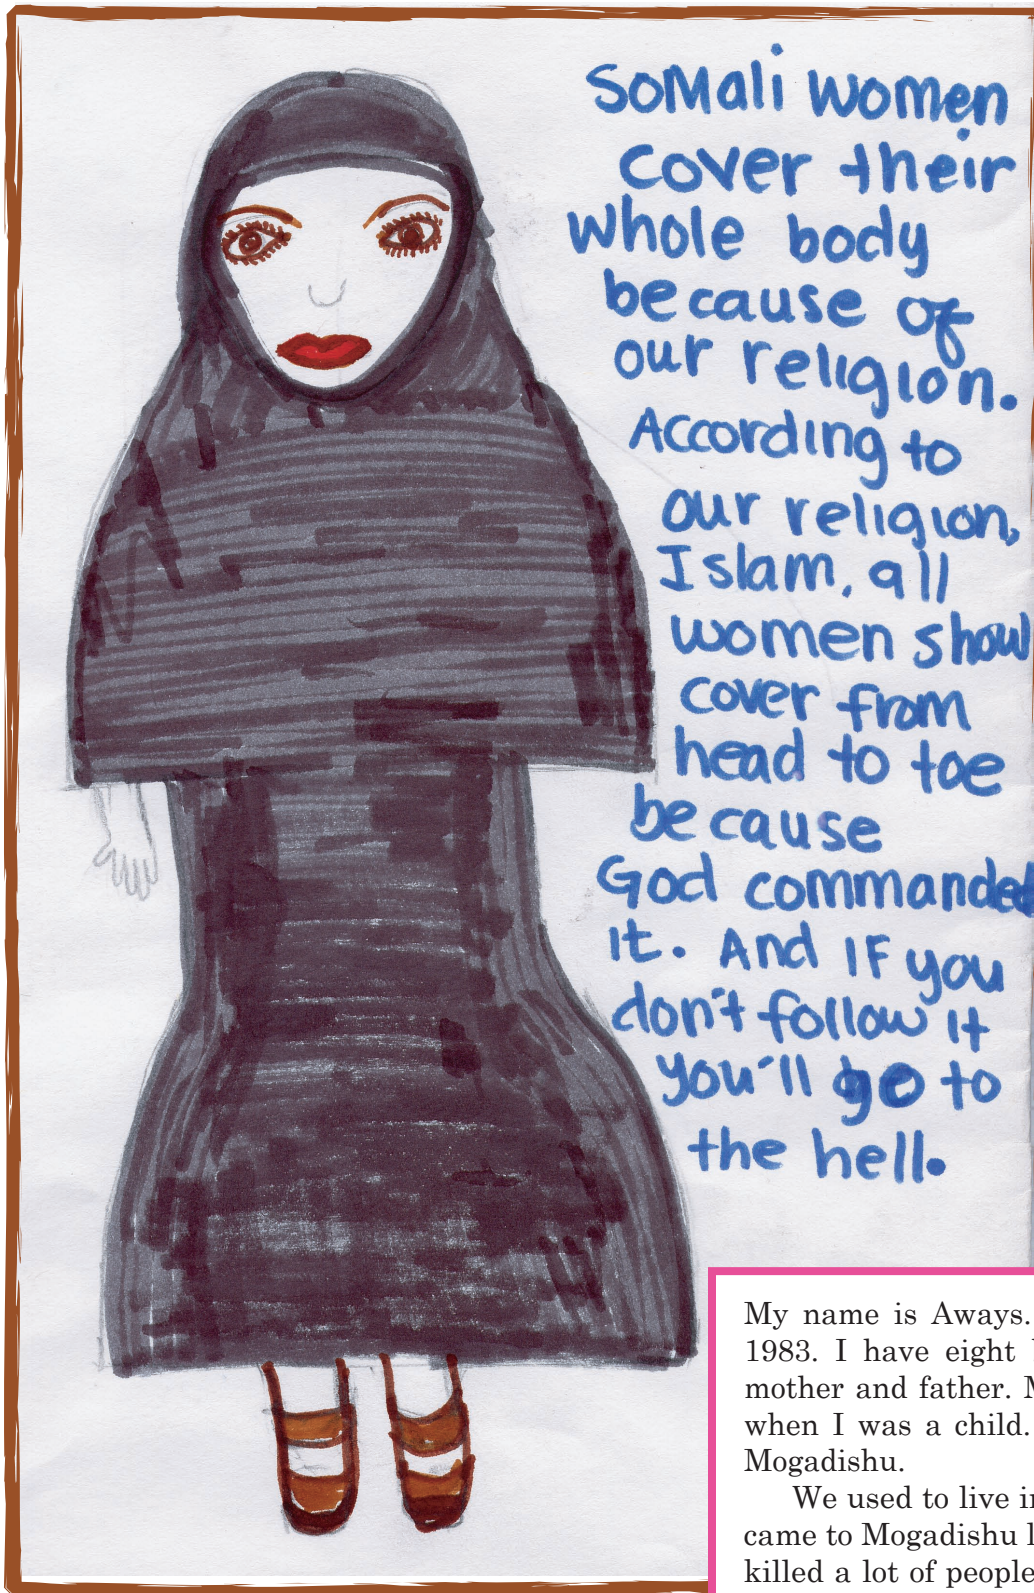 SoMali women
cover their
whole body
because of
our religion.
According to
our religion,
Islam, all
women shoul
cover from
head to toe
because
God commanded
it. And IF you
don't follow it
you'll go to
the hell.
My name is Aways.
1983. I have eight
mother and father.
when I was a child.
Mogadishu.
We used to live in
came to Mogadishu
killed a lot of people